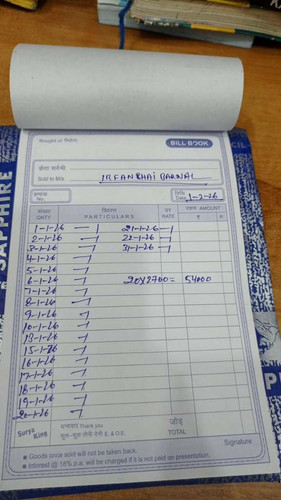 SAPPHIRE
Bought of
BILL BOOK
Sold to M/s. IRFANBHAI BARNAL
No. Date 1-2-26
QNTY. विवरण PARTICULARS दर RATE रकम AMOUNT
₹ P.
1-1-26 — 1 21-1-26 — 1
2-1-26 — 1 22-1-26 — 1
3-1-26 — 1 31-1-26 — 1
4-1-26 1
5-1-26 1
6-1-26 1 20X2700= 54000
7-1-26 1
8-1-26 1
9-1-26 1
10-1-26 1
13-1-26 1
15-1-26 1
16-1-26 1
17-1-26 1
18-1-26 1
19-1-26 1
20-1-26 1
Surya King
धन्यवाद Thank you
भूल-चूक लेनी देनी E. & O.E.
जोड़ TOTAL
Signature
Goods once sold will not be taken back.
Interest @ 18% p.a. will be charged if it is not paid on presentation.